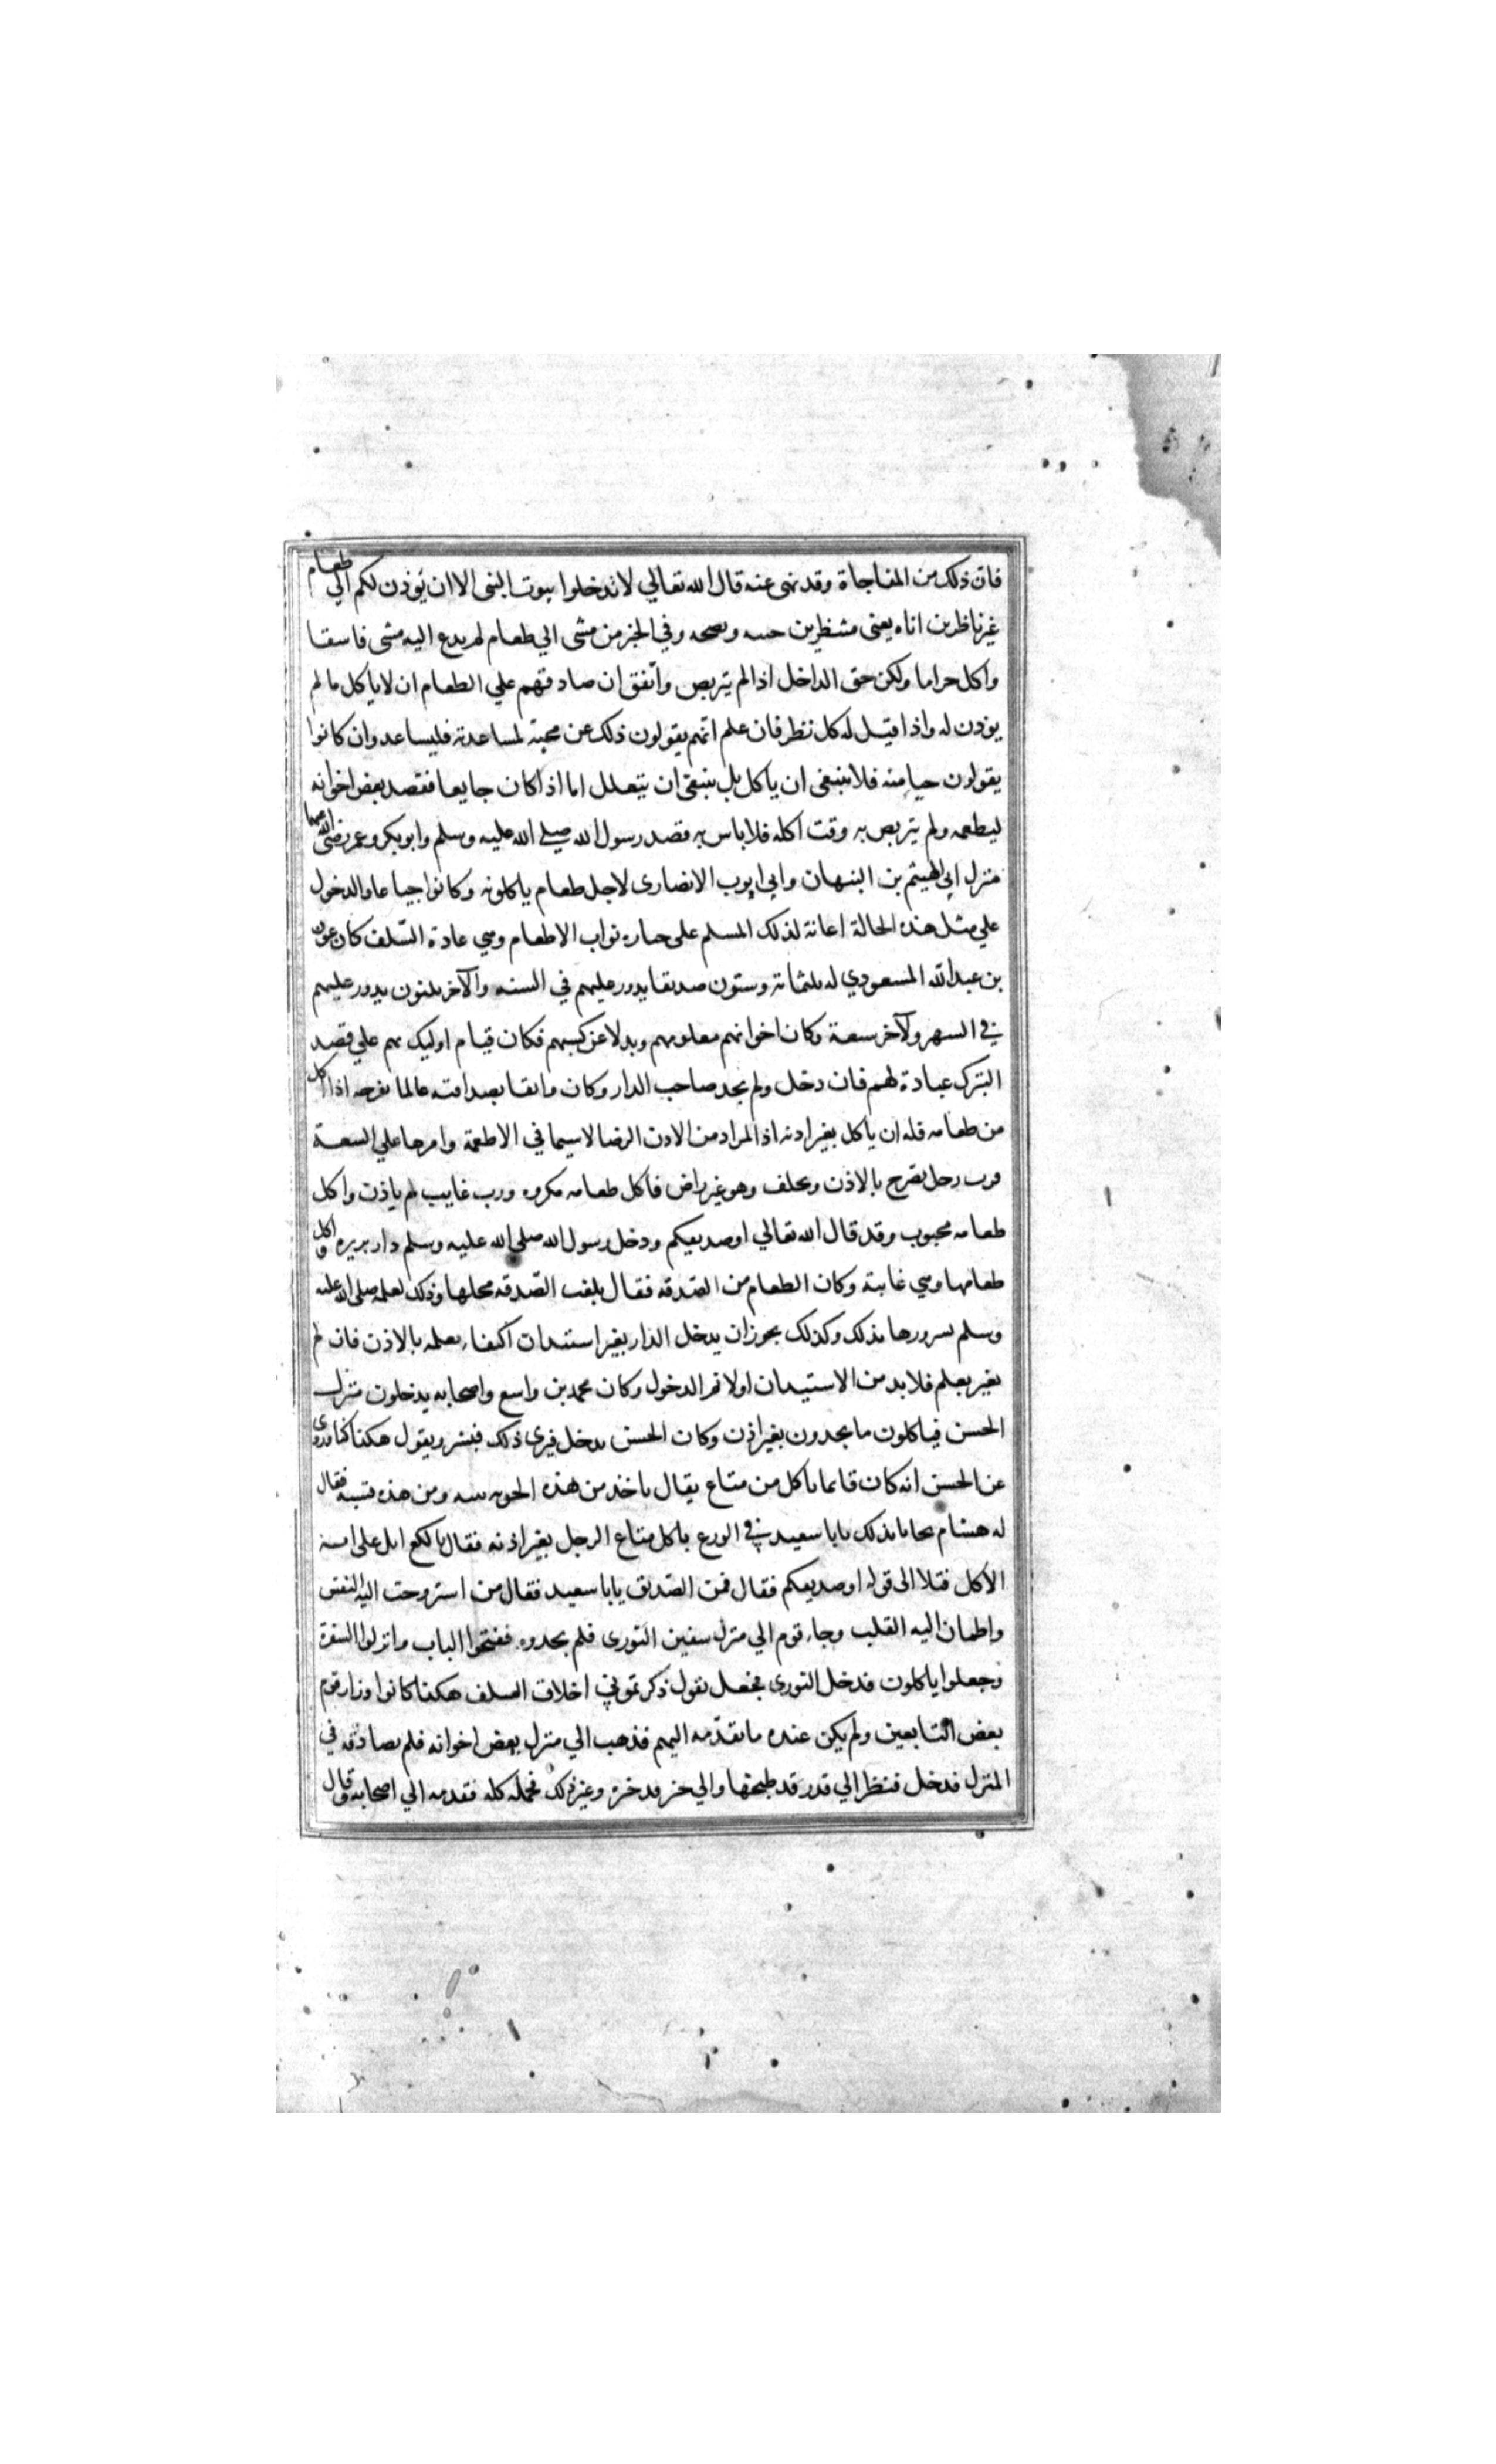 فان ذلك من المفاجاة وقد نهى عنه قال الله تعالي لا تدخلوا بيوت النبى الا ان يؤذن لكم الي طعام
غير ناظرين اناه يعنى منتظرين حينه ونضجه وفي الخبر من مشى الي طعام لم يدع اليه مشى فاسقا
واكل حراما ولكن حق الداخل اذا لم يتربص واتفق ان صادفهم علي الطعام ان لا ياكل ما لم
يوذن له واذا قيل له كل نظر فان علم انهم يقولون ذلك عن محبة لمساعدته فليساعد وان كانوا
يقولون حياء منه فلا ينبغى ان ياكل بل ينبغى ان يتعلل اما اذا كان جايعا فقصد بعض اخوانه
ليطعمه ولم يتربص به وقت اكله فلا باس به قصد رسول الله صلى الله عليه وسلم وابو بكر وعمر رضى الله عنهما
منزل ابي الهيثم بن التيهان وابي ايوب الانصارى لاجل طعام ياكلونه وكانوا جياعا والدخول
علي مثل هذه الحالة اعانة لذلك المسلم على حيازه ثواب الاطعام وهي عادة السلف كان عون
بن عبد الله المسعودي له ثلثماته وستون صديقا يدور عليهم في السنه والآخر ثلثون يدور عليهم
في الشهر ولآخر سبعة وكان اخوانهم معلومهم وبدلا عن كسبهم فكان قيام اوليك بهم علي قصد
التبرك عبادة لهم فان دخل ولم يجد صاحب الدار وكان واثقا بصداقته عالما بفرحه اذا اكل
من طعامه فله ان ياكل بغير اذنه اذ المراد من الاذن الرضا لا سيما في الاطعمة وامرها علي السعة
فرب رجل يصرح بالاذن ويحلف وهو غير راض فاكل طعامه مكروه ورب غايب لم ياذن واكل
طعامه محبوب وقد قال الله تعالي او صديقكم ودخل رسول الله صلى الله عليه وسلم دار بريره واكل
طعامها وهي غايبة وكان الطعام من الصدقه فقال بلغت الصدقه محلها وذلك لعلمه صلى الله عليه
وسلم بسرورها بذلك وكذلك يجوز ان يدخل الدار بغير استيذان اكتفاء بعلمه بالاذن فان لم
بغير بعلم فلا بد من الاستيذان اولا ثم الدخول وكان محمد بن واسع واصحابه يدخلون منزل
الحسن فياكلون ما يجدون بغير اذن وكان الحسن يدخل فيرى ذلك فيسر ويقول هكذا كنا وروى
عن الحسن انه كان قايما ياكل من متاع بقال ياخذ من هذه الجونه تينه ومن هذه قسبه فقال
له هشام ما بدا لك يابا سعيد في الورع ياكل متاع الرجل بغير اذنه فقال يا لكع اتل على اية
الاكل فتلا الى قوله او صديقكم فقال فمن الصديق يابا سعيد فقال من استروحت اليه النفس
واطمان اليه القلب وجاء قوم الي منزل سفين الثورى فلم يجدوه ففتحوا الباب وانزلوا السفرة
وجعلوا ياكلون فدخل الثورى فجعل يقول ذكرتموني اخلاق السلف هكذا كانوا وزار قوم
بعض التابعين ولم يكن عنده ما يقدمه اليهم فذهب الي منزل بعض اخوانه فلم يصادفه في
المنزل فدخل فنظر الي قدر قد طبخها والي خبز قد خبزه وغير ذلك فحمله كله فقدمه الي اصحابه وقال